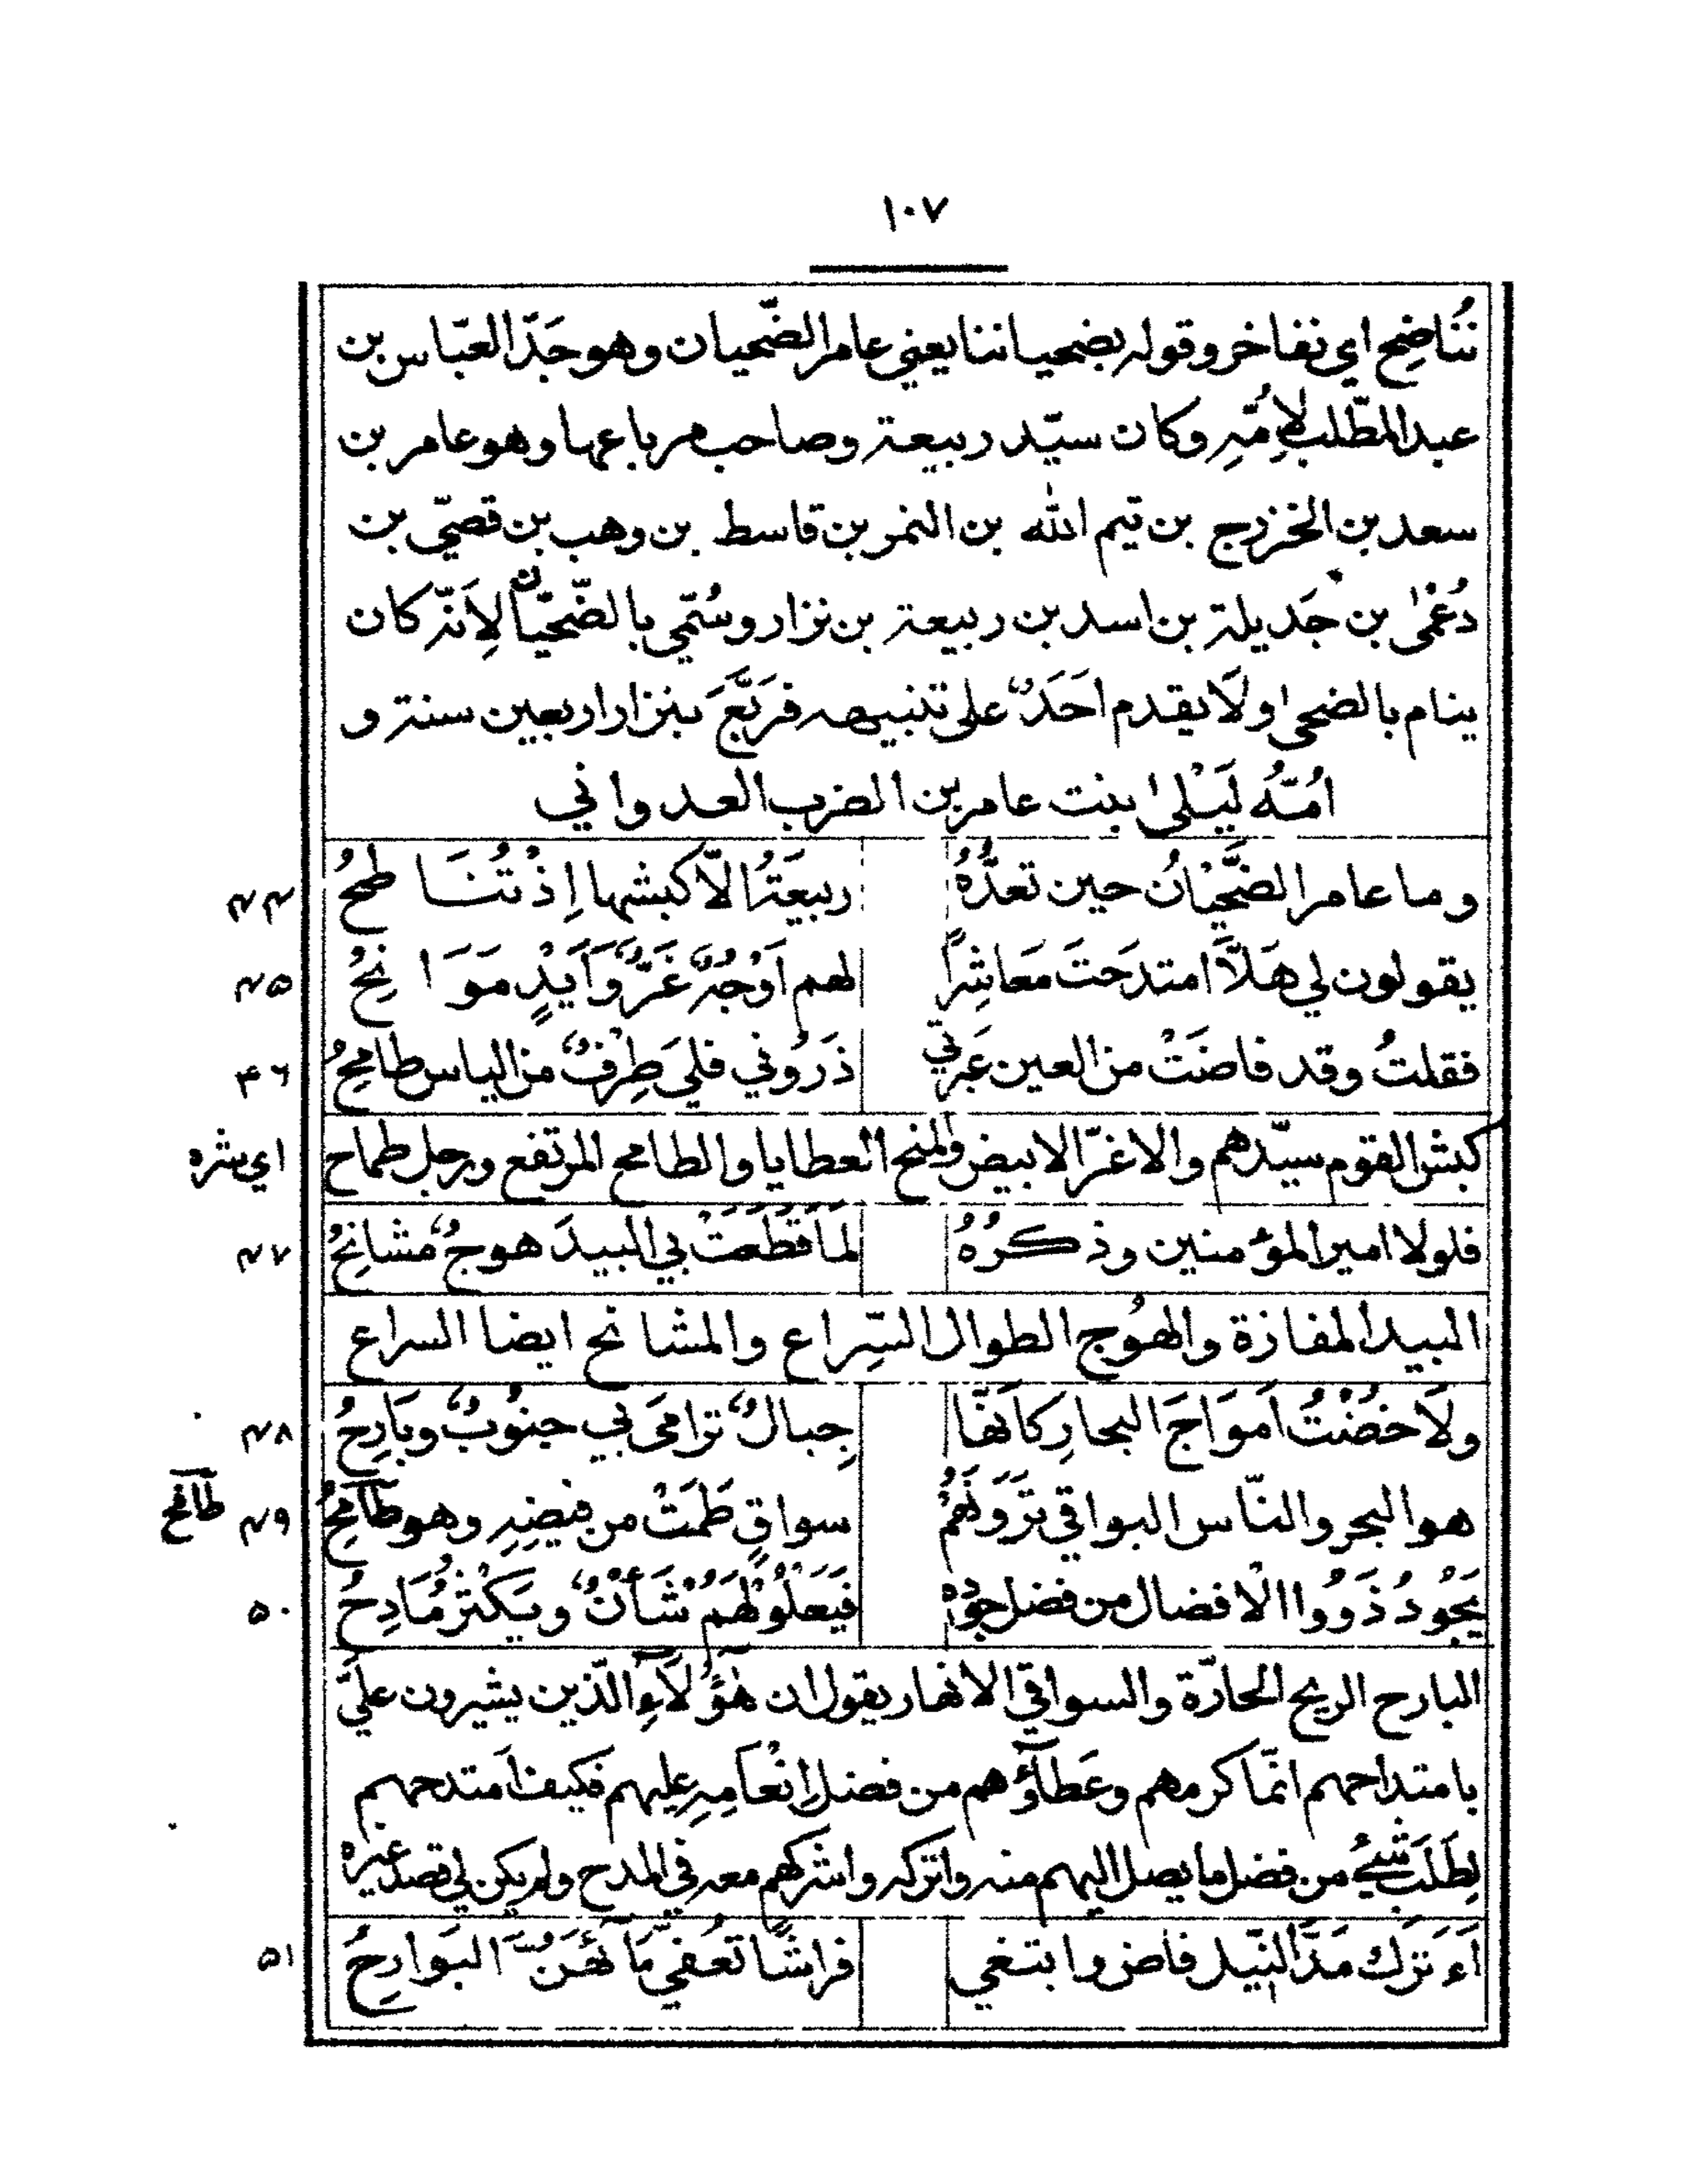 ١٠٧
نُنَاضِحِ اي نفاخر وقوله بضحياننا يعني عامر الضّحيان وهو جَدّ العبّاس بن
عبد المطّلب لِاُمِّهِ وكان سيّد ربيعة وصاحب مرباعها وهو عامر بن
سعد بن الخزرج بن تيم الله بن النمر بن قاسط بن وهب بن قصيّ بن
دُعْمٰى بن جَديلة بن اسد بن ربيعة بن نزار وسُمّي بالضّحيّان لِاَنّه كان
ينام بالضحى ولَا يقدم احَدٌ على تنبيهه فربَّعَ بنزار اربعين سنة و
امُّهُ لَيْلىٰ بنت عامر بن الضرب العدواني
وما عامر الضَّحْيَانُ حين تعدُّهُ ربيعَةُ الاّ كبشها اِذْ تُنَاطحُ ٤٤
يقولون لي هَلَّا امتدَحتَ مَعَاشِراً لهم اَوْجُهٌ غَرٌّ وَاَيْدٍ مَوَانِحُ ٤٥
فقلتُ وقد فاضَتْ من العين عَبرتي ذَرُوني فلي طِرْفٌ من الياس طامحُ ٤٦
كبش القوم سيّدهم والاغرّ الابيض والمنح العطايا والطامح المرتفع ورجل طماح اي شره
فلولا امير المؤمنين وذكرُهُ لمَا قَطَعَتْ بي البيدَ هوجٌ مشانِحُ ٤٧
البيد المفازة والهُوج الطوال السِّراع والمشانح ايضا السراع
ولَا خضْتُ اَموَاجَ البحارِ كاَنّهَا جِبالٌ ترامىَ بي جنوُبٌ وبَارِحُ ٤٨
هو البحر والنّاس البواقي تَرَوْنَهُمْ سواقٍ طَمَتْ من فيضِهِ وهو طَامحُ ٤٩ طَافح
يَجُودُ ذَوُوا الْافضال من فضل جودِهِ فَيَعْلُو لَهُمْ شَأْنٌ ويَكْثرُ مَادِحُ ٥٠
البارح الريح الحارّة والسواقي الانهار يقول ان هٰؤُلَآءِ الّذين يشيرون عليَّ
بامتداحهم انّما كرمهم وعَطَآؤُهم من فضل اِنْعَامِهِ عليهم فكيف اَمتدحهم
لِطَلَب شَيْءٍ من فضل ما يصل اليهم منه واتركه واشركهم معه في المدح ولم يكن لي قصد غيره
اَءَترك مَدَّ النّيل فاض وابتغي فراشًا تعُفي مَآئَهُنَّ البَوارِحُ ٥١